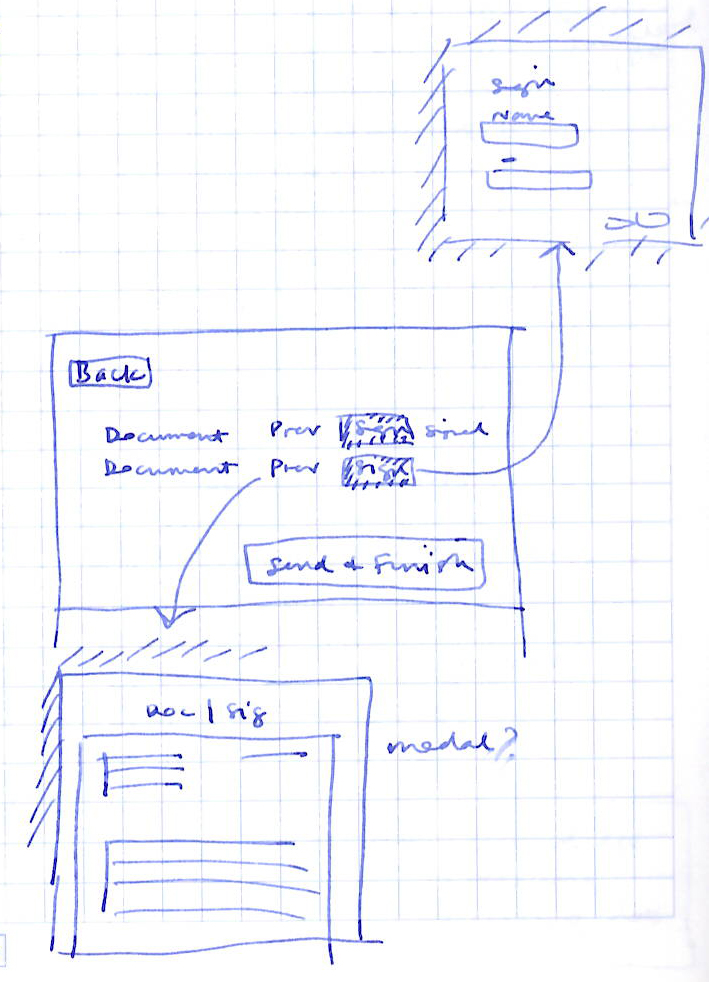 Sign
Name
Back
Document Prev Sign Signed
Document Prev Sign
Send & Finish
Doc | Sig
modal?